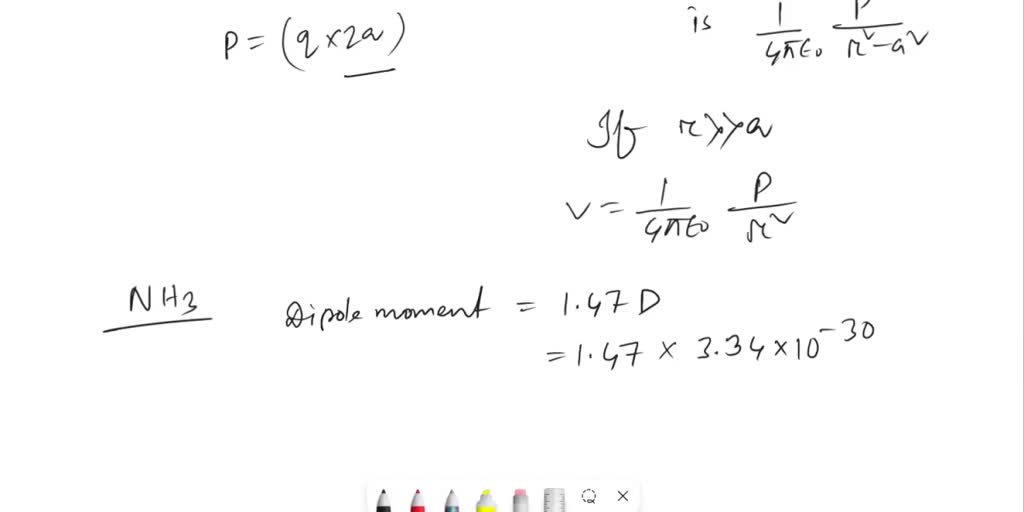 P = (q×2a)
is 1/4πε₀ P/r²-a²
If r>>a
V = 1/4πε₀ P/r²
NH3 Dipole moment = 1.47 D
= 1.47 × 3.34×10⁻³⁰